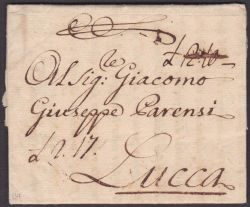 £ 12.10
Al Sig:re Giacomo
Giuseppe Parensi
£ 2.17.
Lucca